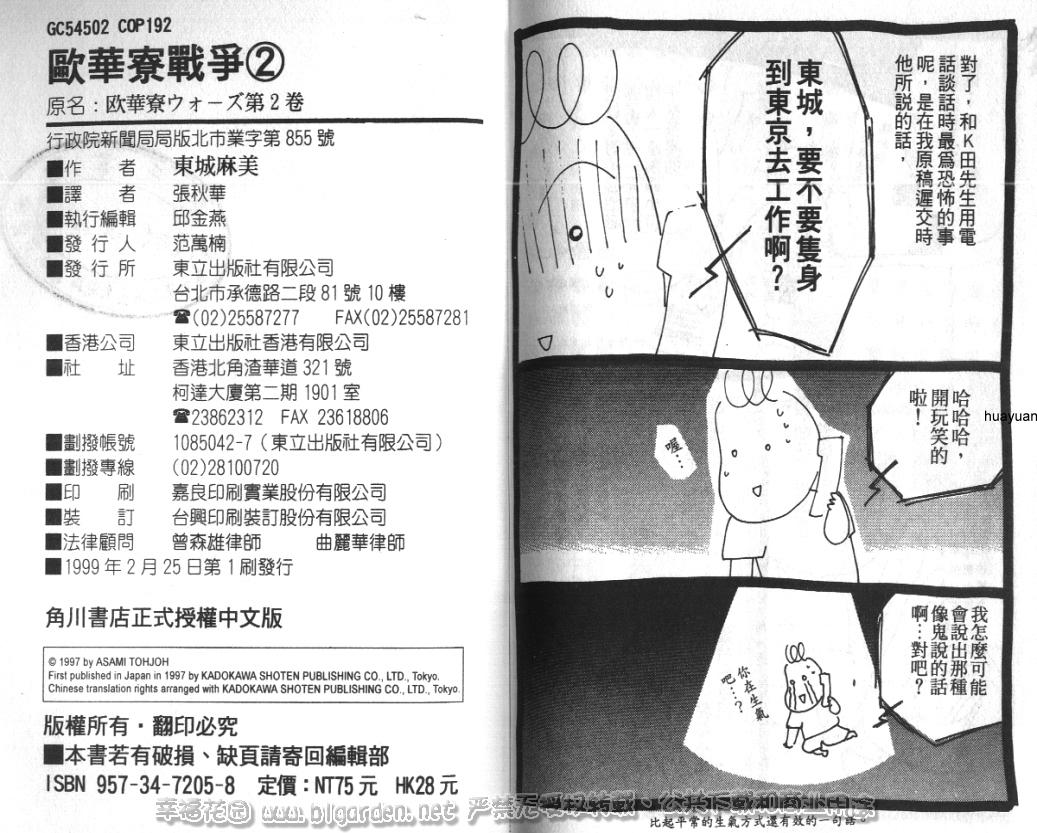 GC54502 COP192
歐華寮戰爭②
原名：欧華寮ウォーズ第2巻
行政院新聞局局版北市業字第855號
■作　者　東城麻美
■譯　者　張秋華
■執行編輯　邱金燕
■發行人　范萬楠
■發行所　東立出版社有限公司
台北市承德路二段81號10樓
☎(02)25587277　FAX(02)25587281
■香港公司　東立出版社香港有限公司
■社　址　香港北角渣華道321號
柯達大廈第二期1901室
☎23862312　FAX 23618806
■劃撥帳號　1085042-7（東立出版社有限公司）
■劃撥專線　(02)28100720
■印　刷　嘉良印刷實業股份有限公司
■裝　訂　台興印刷裝訂股份有限公司
■法律顧問　曾森雄律師　曲麗華律師
■1999年2月25日第1刷發行
角川書店正式授權中文版
© 1997 by ASAMI TOHJOH
First published in Japan in 1997 by KADOKAWA SHOTEN PUBLISHING CO., LTD., Tokyo.
Chinese translation rights arranged with KADOKAWA SHOTEN PUBLISHING CO., LTD., Tokyo.
版權所有・翻印必究
■本書若有破損、缺頁請寄回編輯部
ISBN 957-34-7205-8　定價：NT75元　HK28元
對了，和K田先生用電
話談話時最爲恐怖的事
呢，是在我原稿遲交時
他所說的話，
東城，要不要隻身
到東京去工作啊？
哈哈哈，
開玩笑的
啦！
huayuan
喔…
我怎麼可能
會說出那種
像鬼說的話
啊…對吧？
你在生氣
吧…？
比起平常的生氣方式還有效的一句話。
幸福花园 www.bjgarden.net 严禁无授权转载、公共下载和商业用途